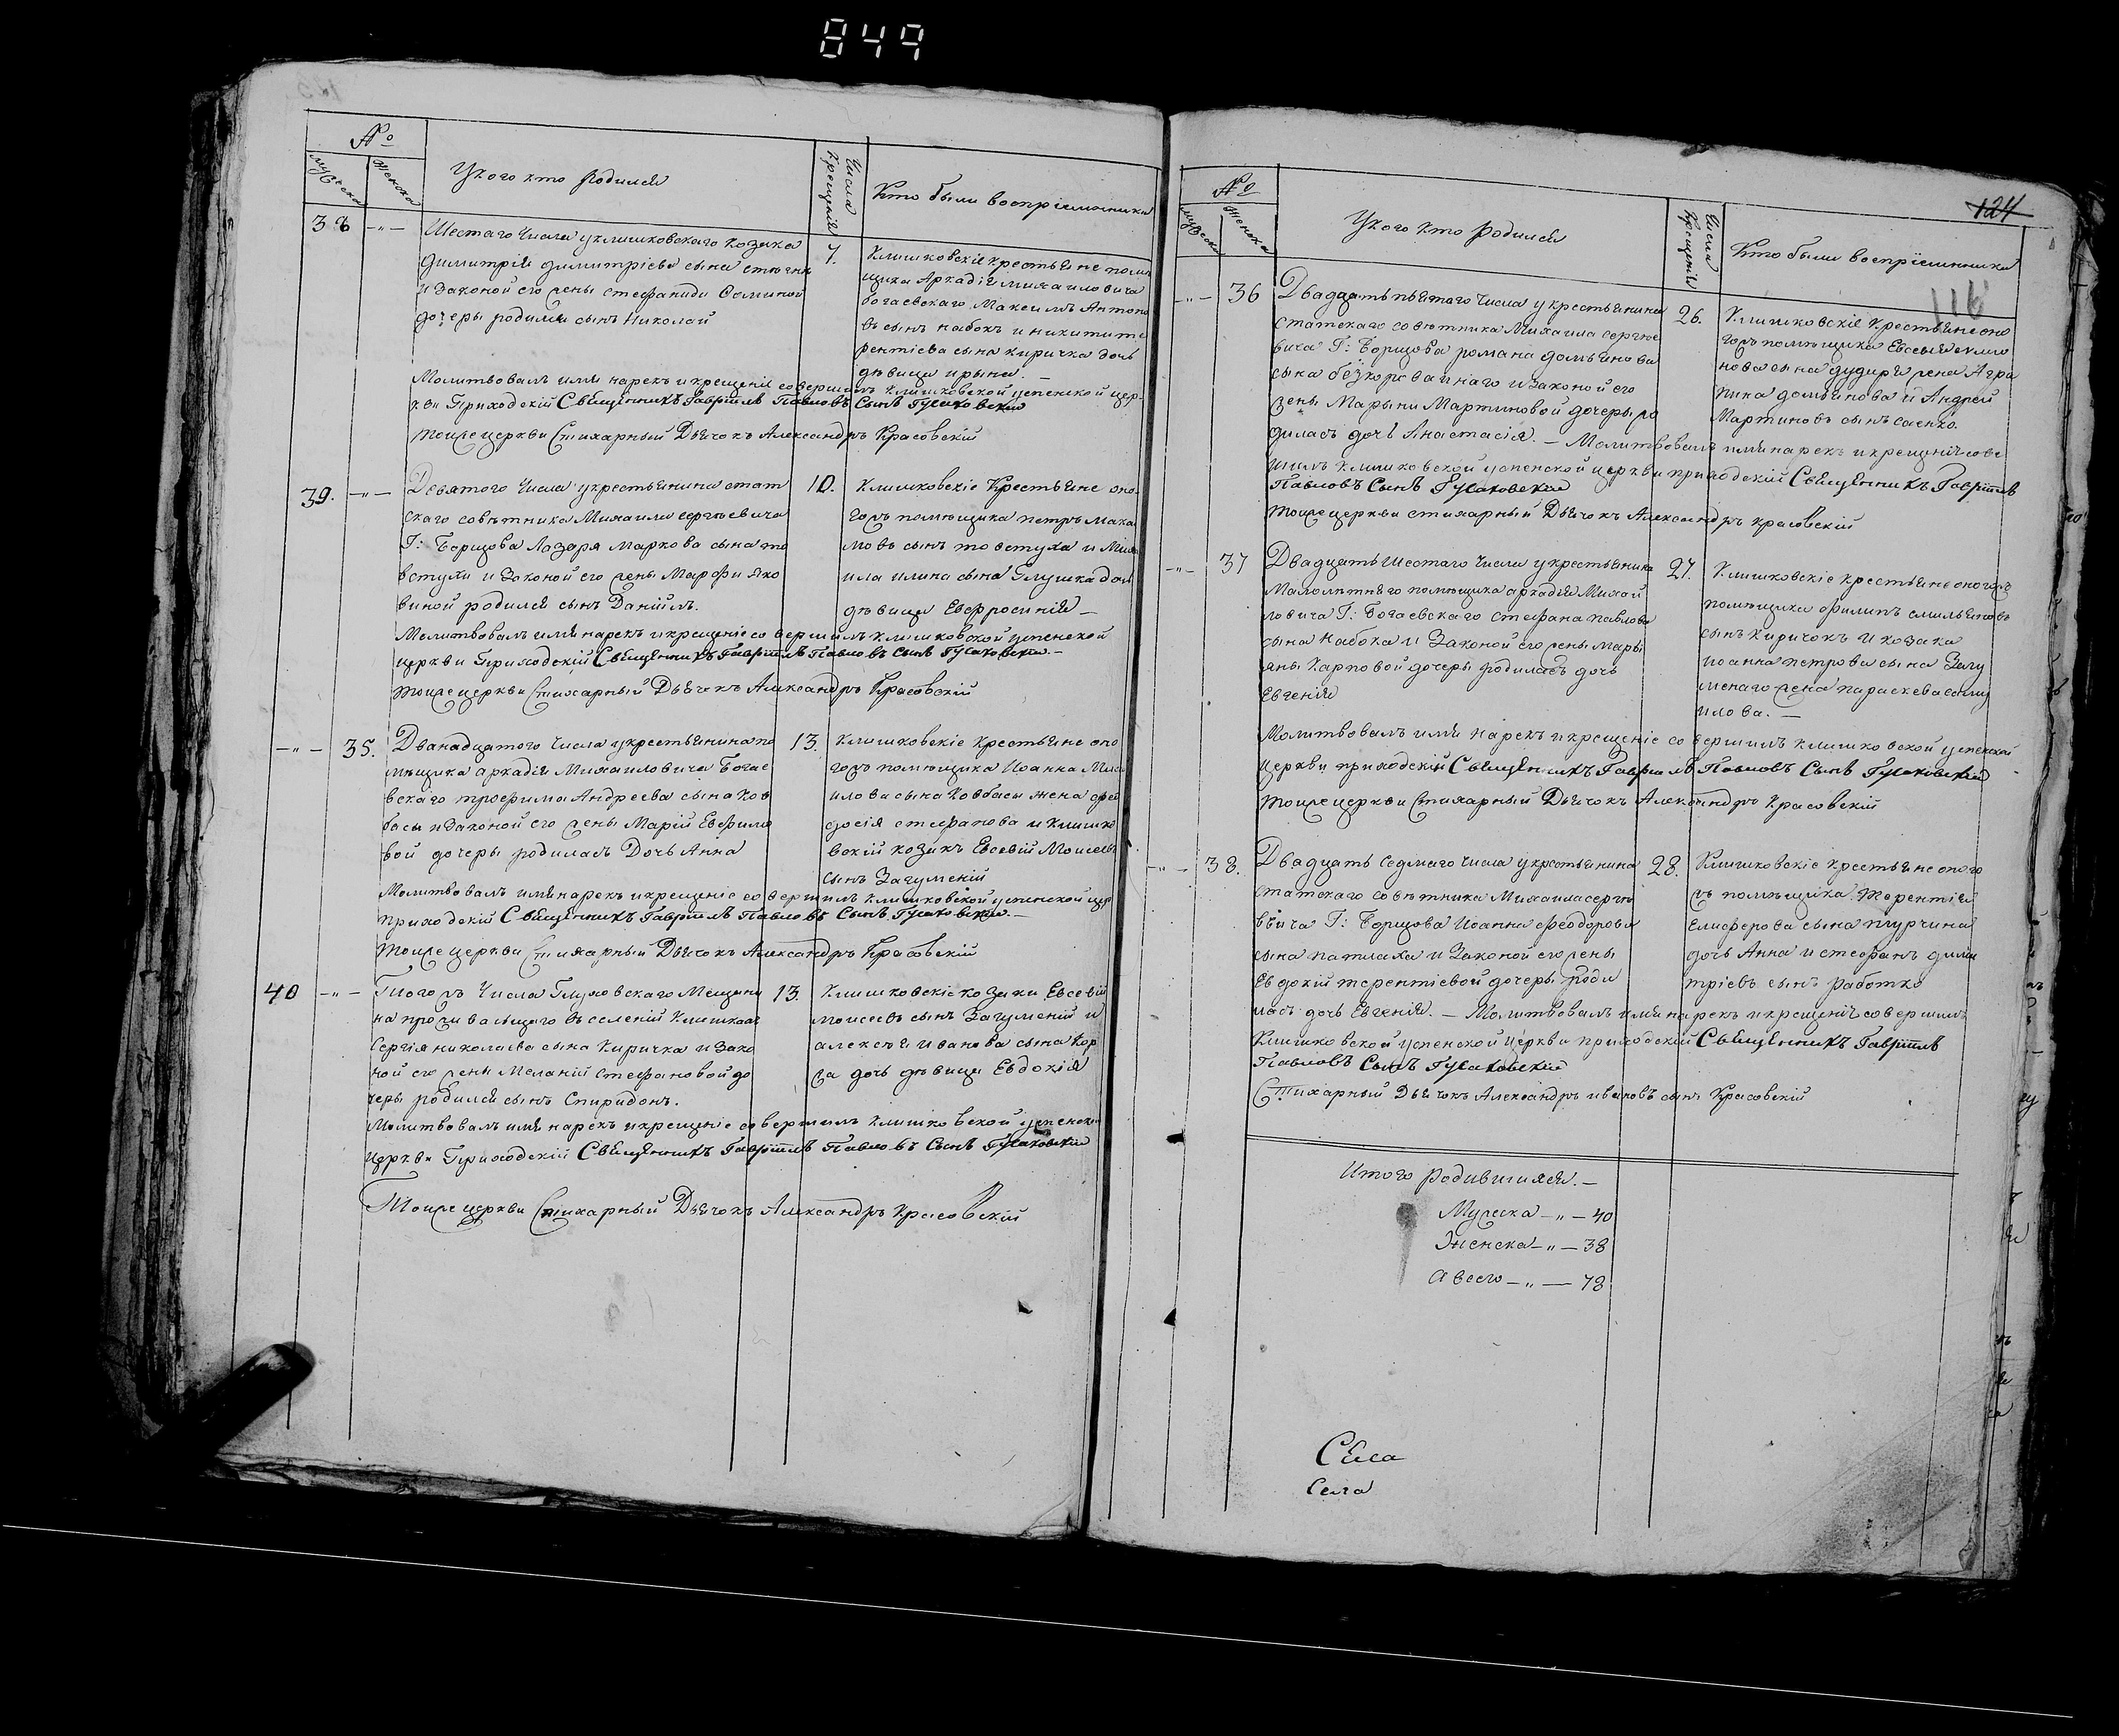 849
№
мужеска
женска
У кого кто родился
Числа крещенія
Кто были воспріемники
38
Шестаго числа у клишковскаго козака
димитрія димитріева сына
и законой его жены стефаниди Фоминой
дочеры родился сынъ Николай
7.
Клишковскіе крестьяне поме
щика Аркадія михаиловича
богаевскаго Максимъ Антоно
въ сынъ набокъ и никити те
рентіева сына киричка дочь
дѣвица ирына. —
Молитвовалъ имя нарекъ и крещеніе совершилъ клишковской успенской цер
кви Приходскій Священникъ Гавріилъ Павловъ Сынъ Гусаковскій
тоиже церкви Стихарный Дьячокъ Александръ Красовскій
39.
Девятого числа у крестьянина стат
скаго совѣтника Михаила сергѣевича
Г: Борщова Лазаря маркова сына то
встухи и законой его жены Марфи яко
виной родился сынъ Даніилъ.
10.
Клишковскіе крестьяне оно
гожъ помѣщика петръ мака
ровъ сынъ товстуха и Миха
ила илина сына Глушка дочь
дѣвица Евфросинія —
Молитвовалъ имя нарекъ и крещеніе совершилъ клишковской успенской
церкви Приходскій Священникъ Гавріилъ Павловъ сынъ Гусаковскій. —
тоиже церкви Стихарный Дьячокъ Александръ Красовскій
35.
Дванадцатого числа у крестьянина по
мѣщика аркадія Михаиловича Богае
вскаго трофима Андреева сына ков
басы и законой его жены Маріи Евфимо
вой дочеры родилась Дочь Анна
13.
Клишковскіе крестьяне оно
гожъ помѣщика Иоанна Миха
илова сына Ковбасы жена фео
досія стефанова и клишко
вскій козакъ Евсевій Моисеевъ
сынъ Загуменій
Молитвовалъ имя нарекъ и крещеніе совершилъ клишковской успенской цер
приходскій Священникъ Гавріилъ Павловъ Сынъ Гусаковскій. —
тоиже церкви Стихарный Дьячокъ Александръ Красовскій
40
Тогожъ числа Глуховскаго Мещани
на проживающого въ селеніи Клишках
Сергія николаева сына Киричка и зако
ной его жены Меланіи Стефановой до
черы родился сынъ Спиридонъ.
13.
Клишковскіе козаки Евсевій
моисеевъ сынъ Загуменій и
алексѣя иванова сына Кор
жа дочь дѣвица Евдокія
Молитвовалъ имя нарекъ и крещеніе совершилъ клишковской успенской
церкви Приходскій Священникъ Гавріилъ Павловъ Сынъ Гусаковскій
Тоиже церкви Стихарный Дьячокъ Александръ Красовскій
124
116
№
мужеска
женска
У кого кто родился
Числа крещенія
Кто были воспріемники
36
Двадцать пятого числа у крестьянина
статскаго совѣтника Михаила сергѣе
вича Г: Борщова романа домьянова
сына безкороваинаго и законой его
жены Марыни Мартиновой дочеры ро
дилась дочь Анастасія. — Молитвовалъ имя нарекъ и крещеніе сове
26.
Клишковскіе крестьяне оно
гожъ помѣщика Евсевія
нова сына дудиря жена Агра
пина домьянова и Андрей
Мартиновъ сынъ саенко.
шилъ клишковской успенской церкви приходскій Священникъ Гавріилъ
Павловъ Сынъ Гусаковскій
тоиже церкви стихарный Дьячокъ Александръ красовскій
37
Двадцать шестаго числа у крестьянина
Малолѣтнего помѣщика аркадія Михай
ловича Г: Богаевскаго стефана павлова
сына Набока и законой его жены Марь
яны Карповой дочеры родилась дочь
Евгенія
27.
Клишковскіе крестьяне оногожъ
помѣщика филипъ емильяновъ
сынъ киричокъ и козака
иоанна петрова сына Загу
менаго жена параскева саму
илова. —
Молитвовалъ имя нарекъ и крещеніе совершилъ клишковской успенской
церкви приходскій Священникъ Гавріилъ Павловъ Сынъ Гусаковскій
тоиже церкви Стихарный Дьячокъ Александръ Красовскій
38.
Двадцать седмаго числа у крестьянина
статскаго совѣтника Михаила сергѣе
вича Г: Борщова Иоанна феодорова
сына патлаха и законой его жены
Евдокіи терентіевой дочеры роди
лась дочь Евгенія. — Молитвовалъ имя нарекъ и крещеніе совершилъ
28.
Клишковскіе крестьяне оного
жъ помѣщика Терентія
Елиферова сына турчина
дочь Анна и стефанъ дими
тріевъ сынъ работко
Клишковской успенской церкви приходскій Священникъ Гавріилъ
Павловъ Сынъ Гусаковскій
Стихарный Дьячокъ Александръ ивановъ сынъ Красовскій
Итого родившихся. —
Мужеска — „ — 40
Женска — „ — 38
А всего — „ — 78
Села